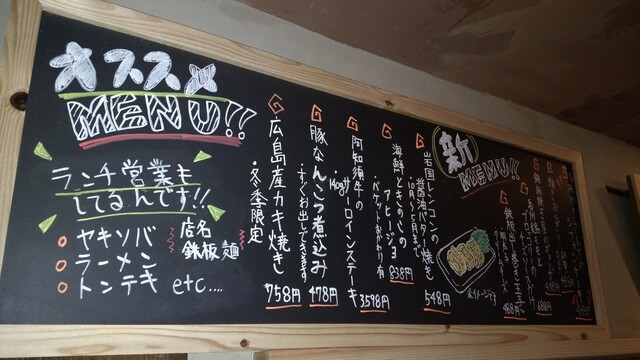 オススメ
MENU!!
ランチ営業も
してるんです!!
ヤキソバ
ラーメン
トンテキ etc....
店名
鉄板麺
広島産カキ焼き
・冬季限定
758円
豚なんこつ煮込み
・すぐお出しできます
478円
阿知須牛の
140gサーロインステーキ
3598円
海鮮ときのこの
アヒージョ
・バケットおかわり有
838円
岩国レンコンの
醤油バター焼き
10月〜5月まで
548円
新
MENU!!
※イメージです
468円